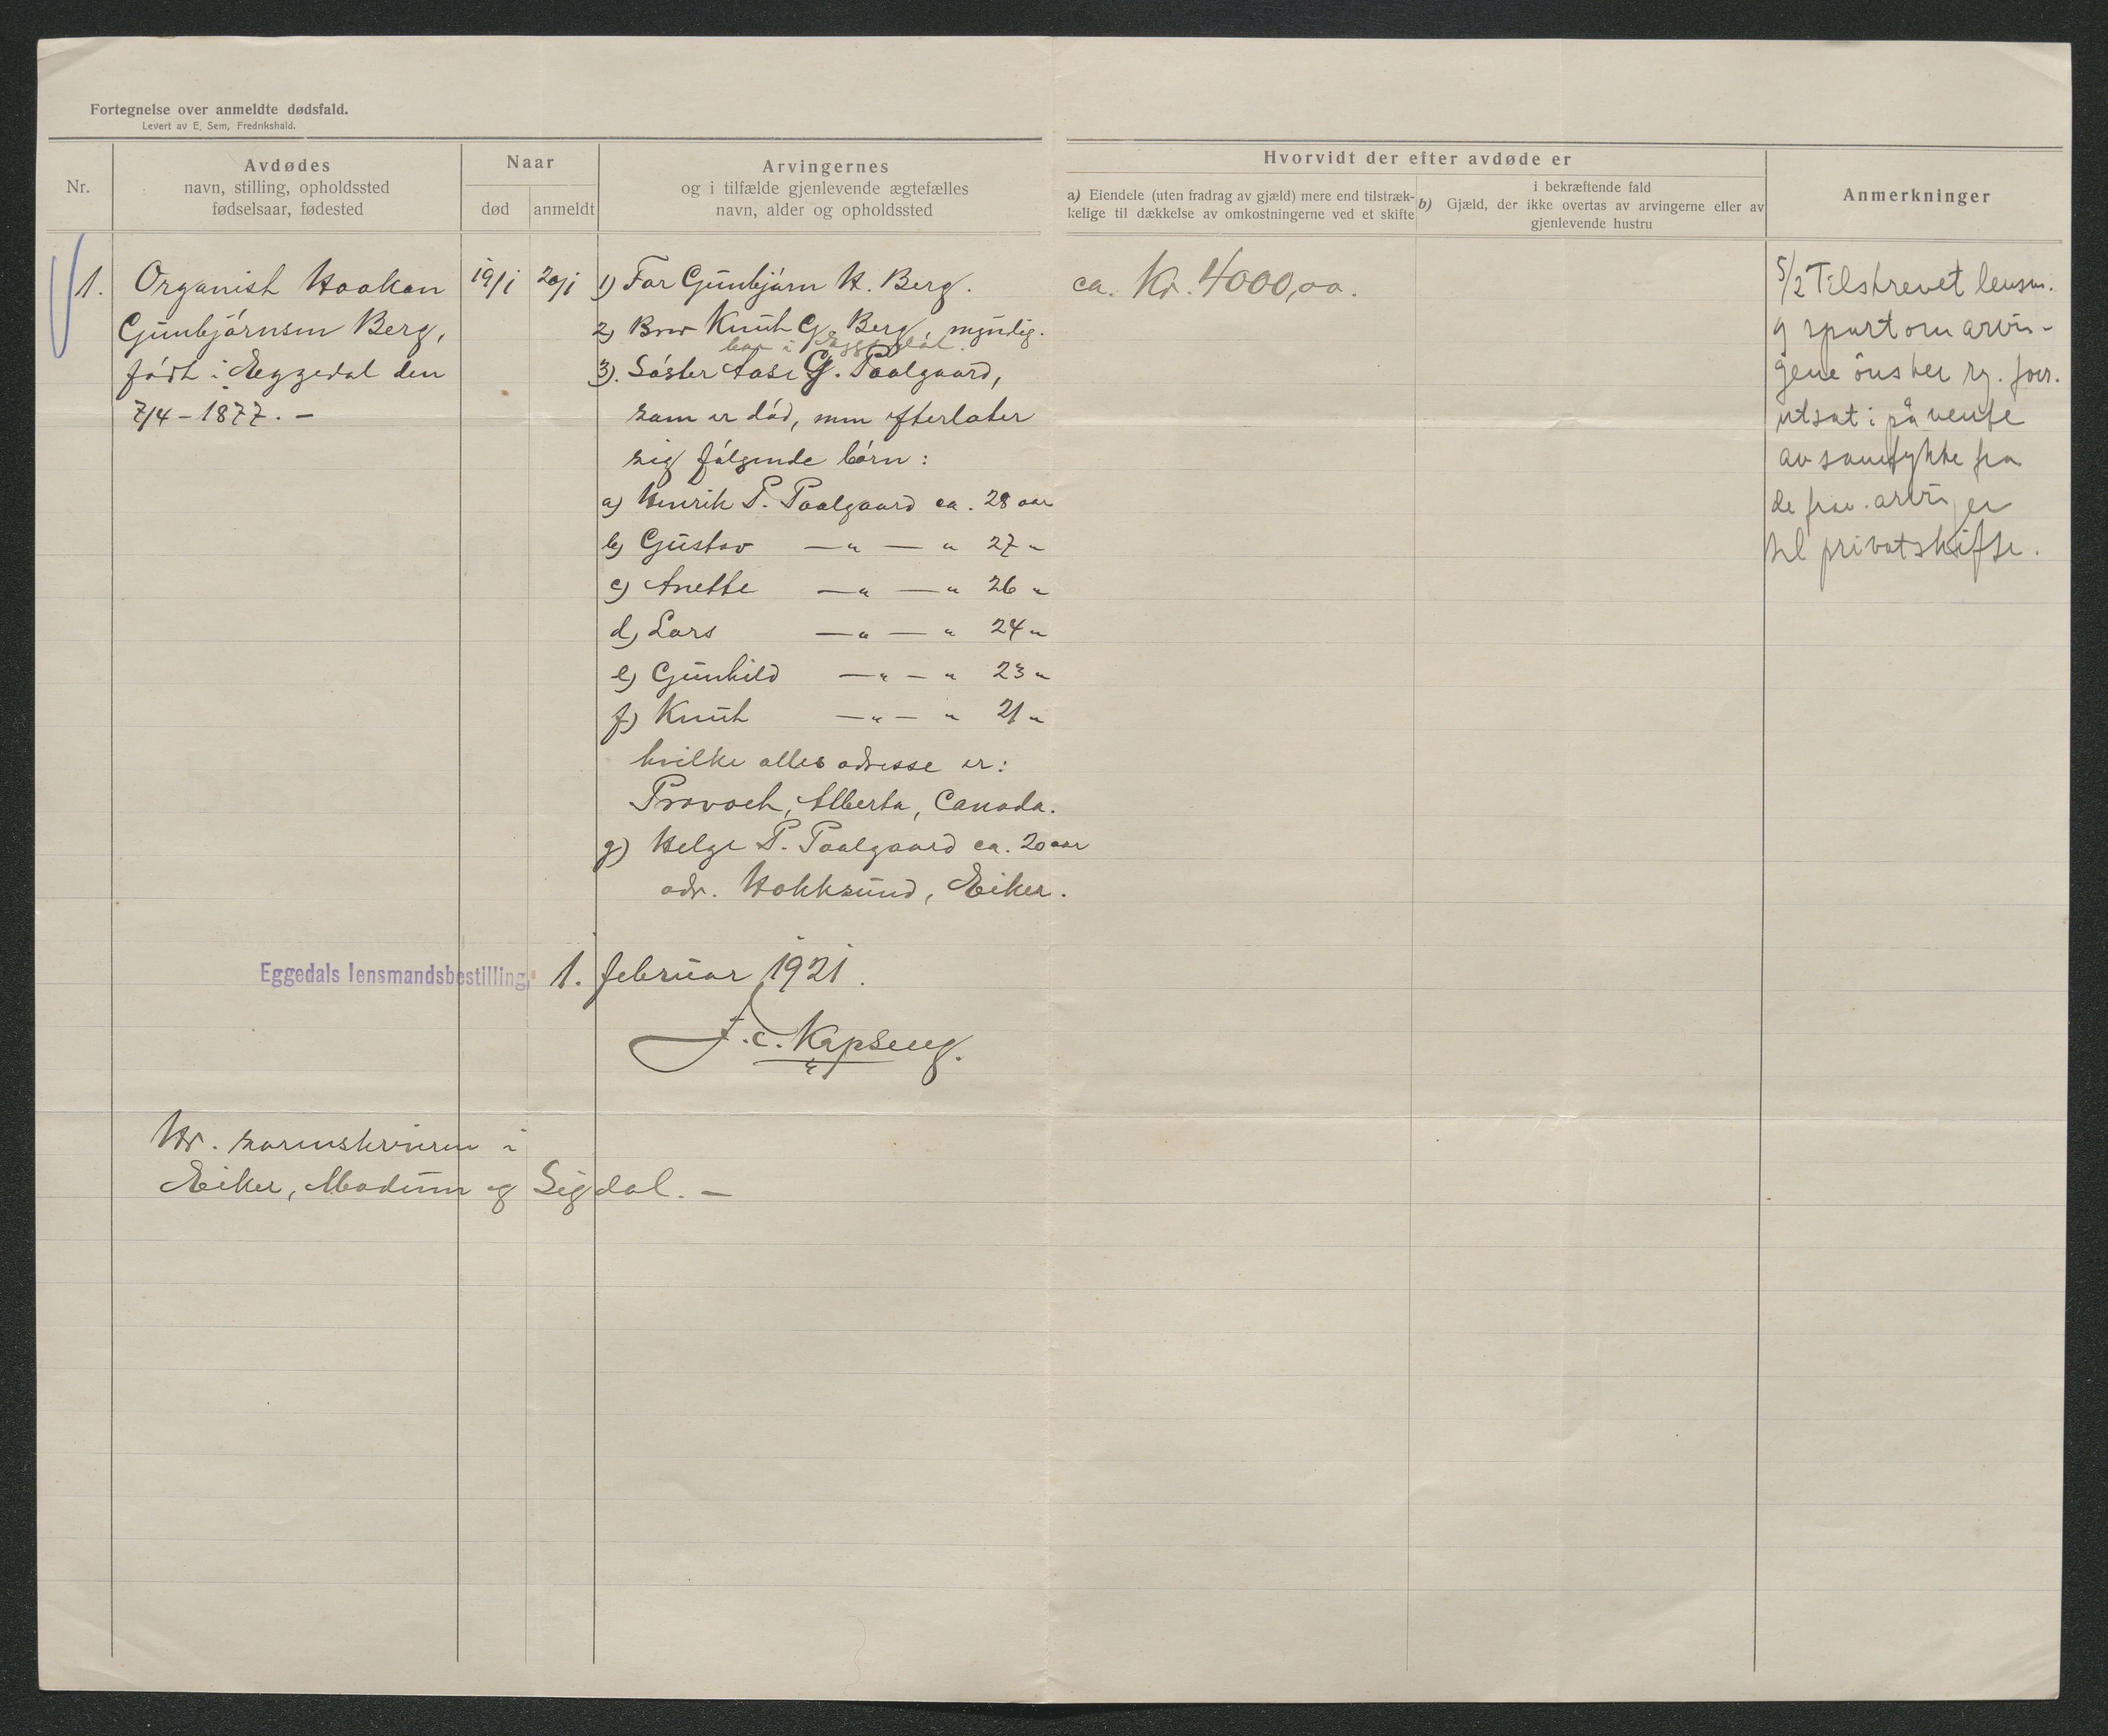 Fortegnelse over anmeldte dødsfald.
Levert av E. Sem, Fredrikshald.
Nr.
Avdødes
navn, stilling, opholdssted
fødselsaar, fødested
Naar
død
anmeldt
Arvingernes
og i tilfælde gjenlevende ægtefælles
navn, alder og opholdssted
Hvorvidt der efter avdøde er
a) Eiendele (uten fradrag av gjæld) mere end tilstræk-
kelige til dækkelse av omkostningerne ved et skifte
i bekræftende fald
b) Gjæld, der ikke overtas av arvingerne eller av
gjenlevende hustru
Anmerkninger
1.
Organist Haakon
Gunbjørnsen Berg,
født i Eggedal den
7/4 - 1877. -
19/1
20/1
1) Far Gunbjørn H. Berg.
2) Bror Knut G. Berg, myndig.
bor i Eggedal.
3). Søster Aase G. Paalgaard,
som er død, men efterlater
sig følgende børn:
a) Henrik P. Paalgaard ca. 28 aar
b) Gustav — " — " 27 "
c) Anette — " — " 26 "
d) Lars — " — " 24 "
e) Gunhild — " — " 23 "
f) Knut — " — " 21 "
hvilke alles adresse er:
Provoch, Alberta, Canada.
g) Helge P. Paalgaard ca. 20 aar
adr. Hokksund, Eiker.
ca. Kr. 4000,00.
5/2 Tilskrevet lensm.
og spurt om arvin-
gene ønsker rg. forr.
utsat i påvente
av samtykke fra
de frav. arvinger
til privat skifte.
Eggedals lensmandsbestilling, 1. februar 1921.
J. C. Kapseng.
Hr. sorenskriveren i
Eiker, Modum og Sigdal. -